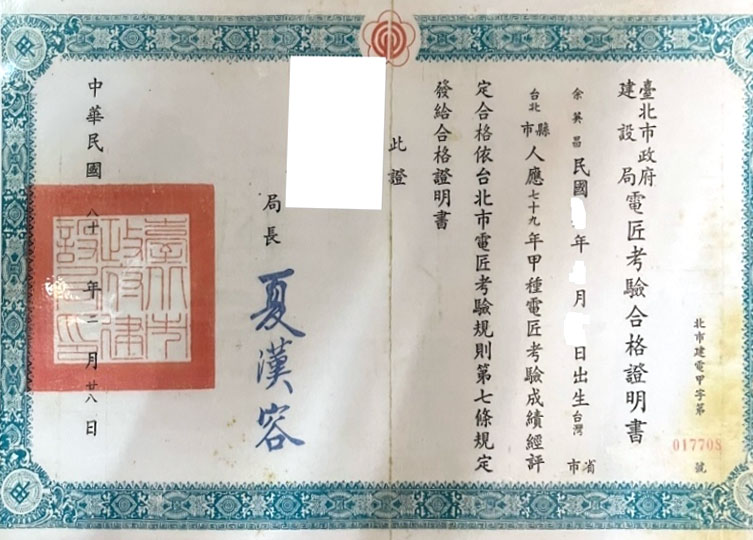 北市建電甲字第 017708 號
臺北市政府建設局電匠考驗合格證明書
余英昌民國 年 月 日出生台灣省市
台北縣市人應七十九年甲種電匠考驗成績經評
定合格依台北市電匠考驗規則第七條規定
發給合格證明書
此證
局長 夏漢容
中華民國八十年二月廿八日
臺北市政府建設局印